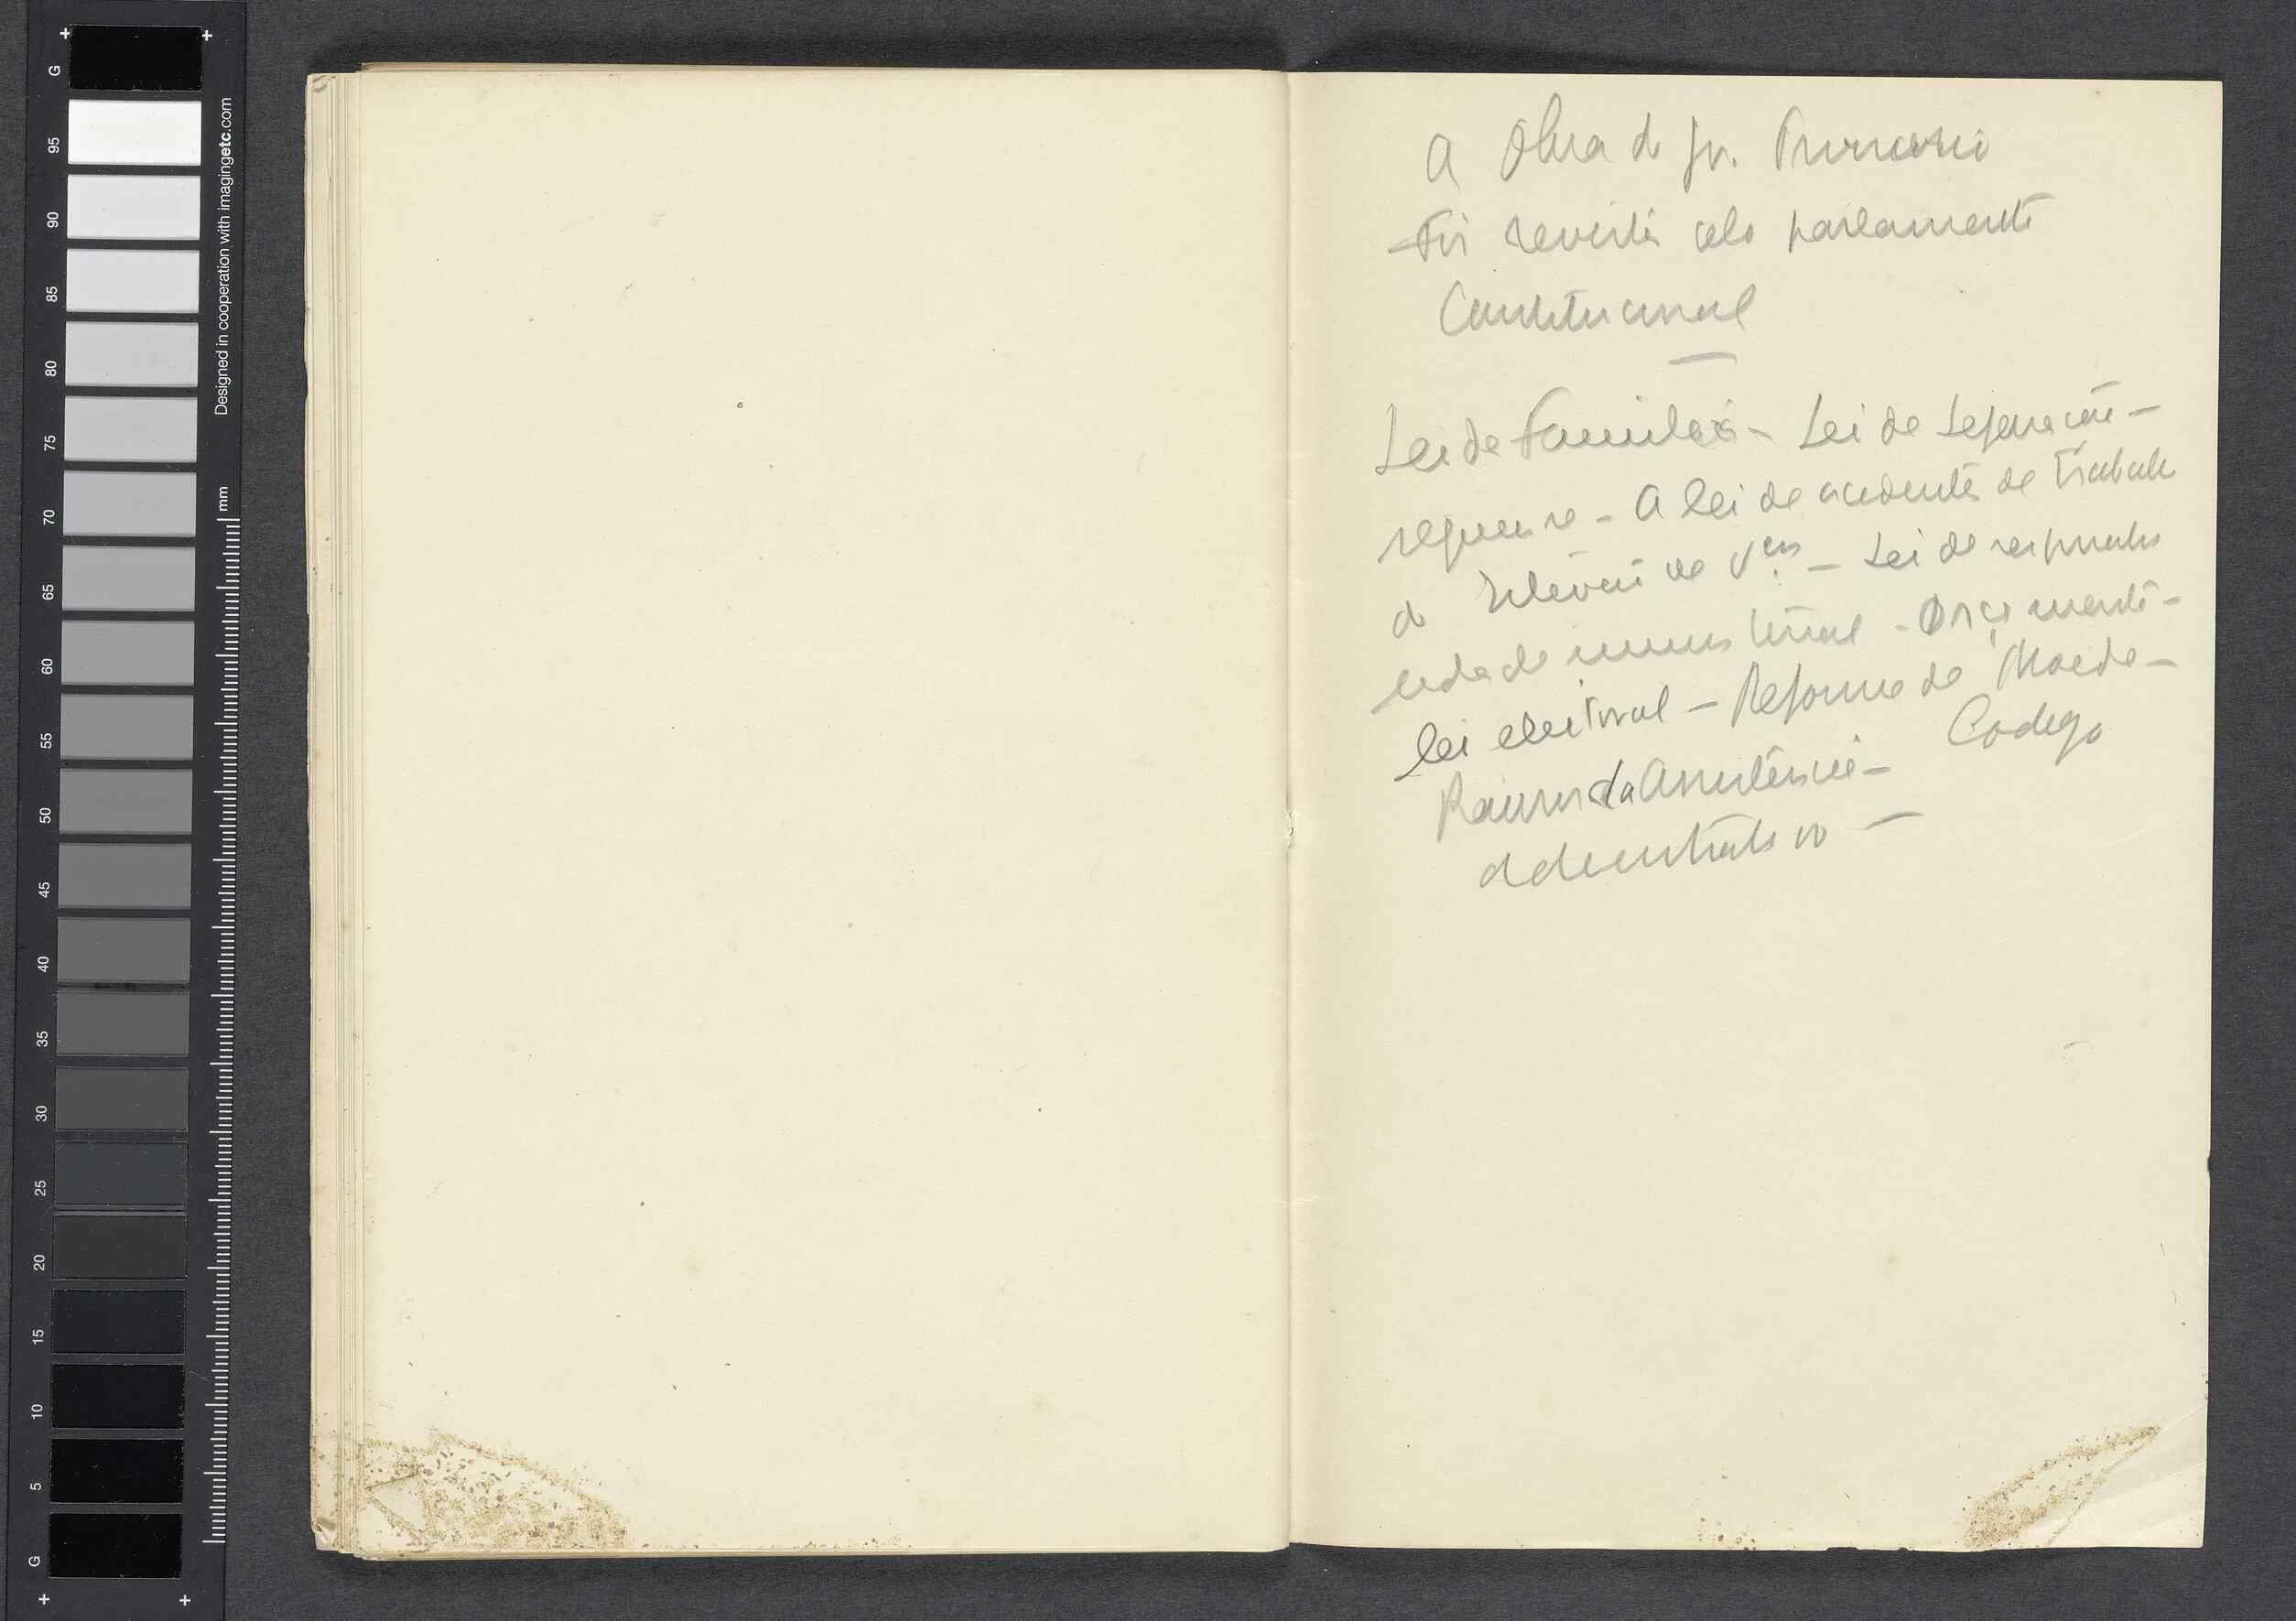 G
95
90
85
80
75
70
65
60
55
50
45
40
35
30
25
20
15
10
5
G
Designed in cooperation with imagingetc.com
mm
A Obra do gov. Provisorio
Foi revista pelo parlamento
Constitucional
Lei de Familia - Lei de Separação -
A lei de acidentes de trabalho
de - Lei de responsabi
lidade ministerial - Orçamento -
lei eleitoral - Reforma da Moeda -
da Assistencia - Codego